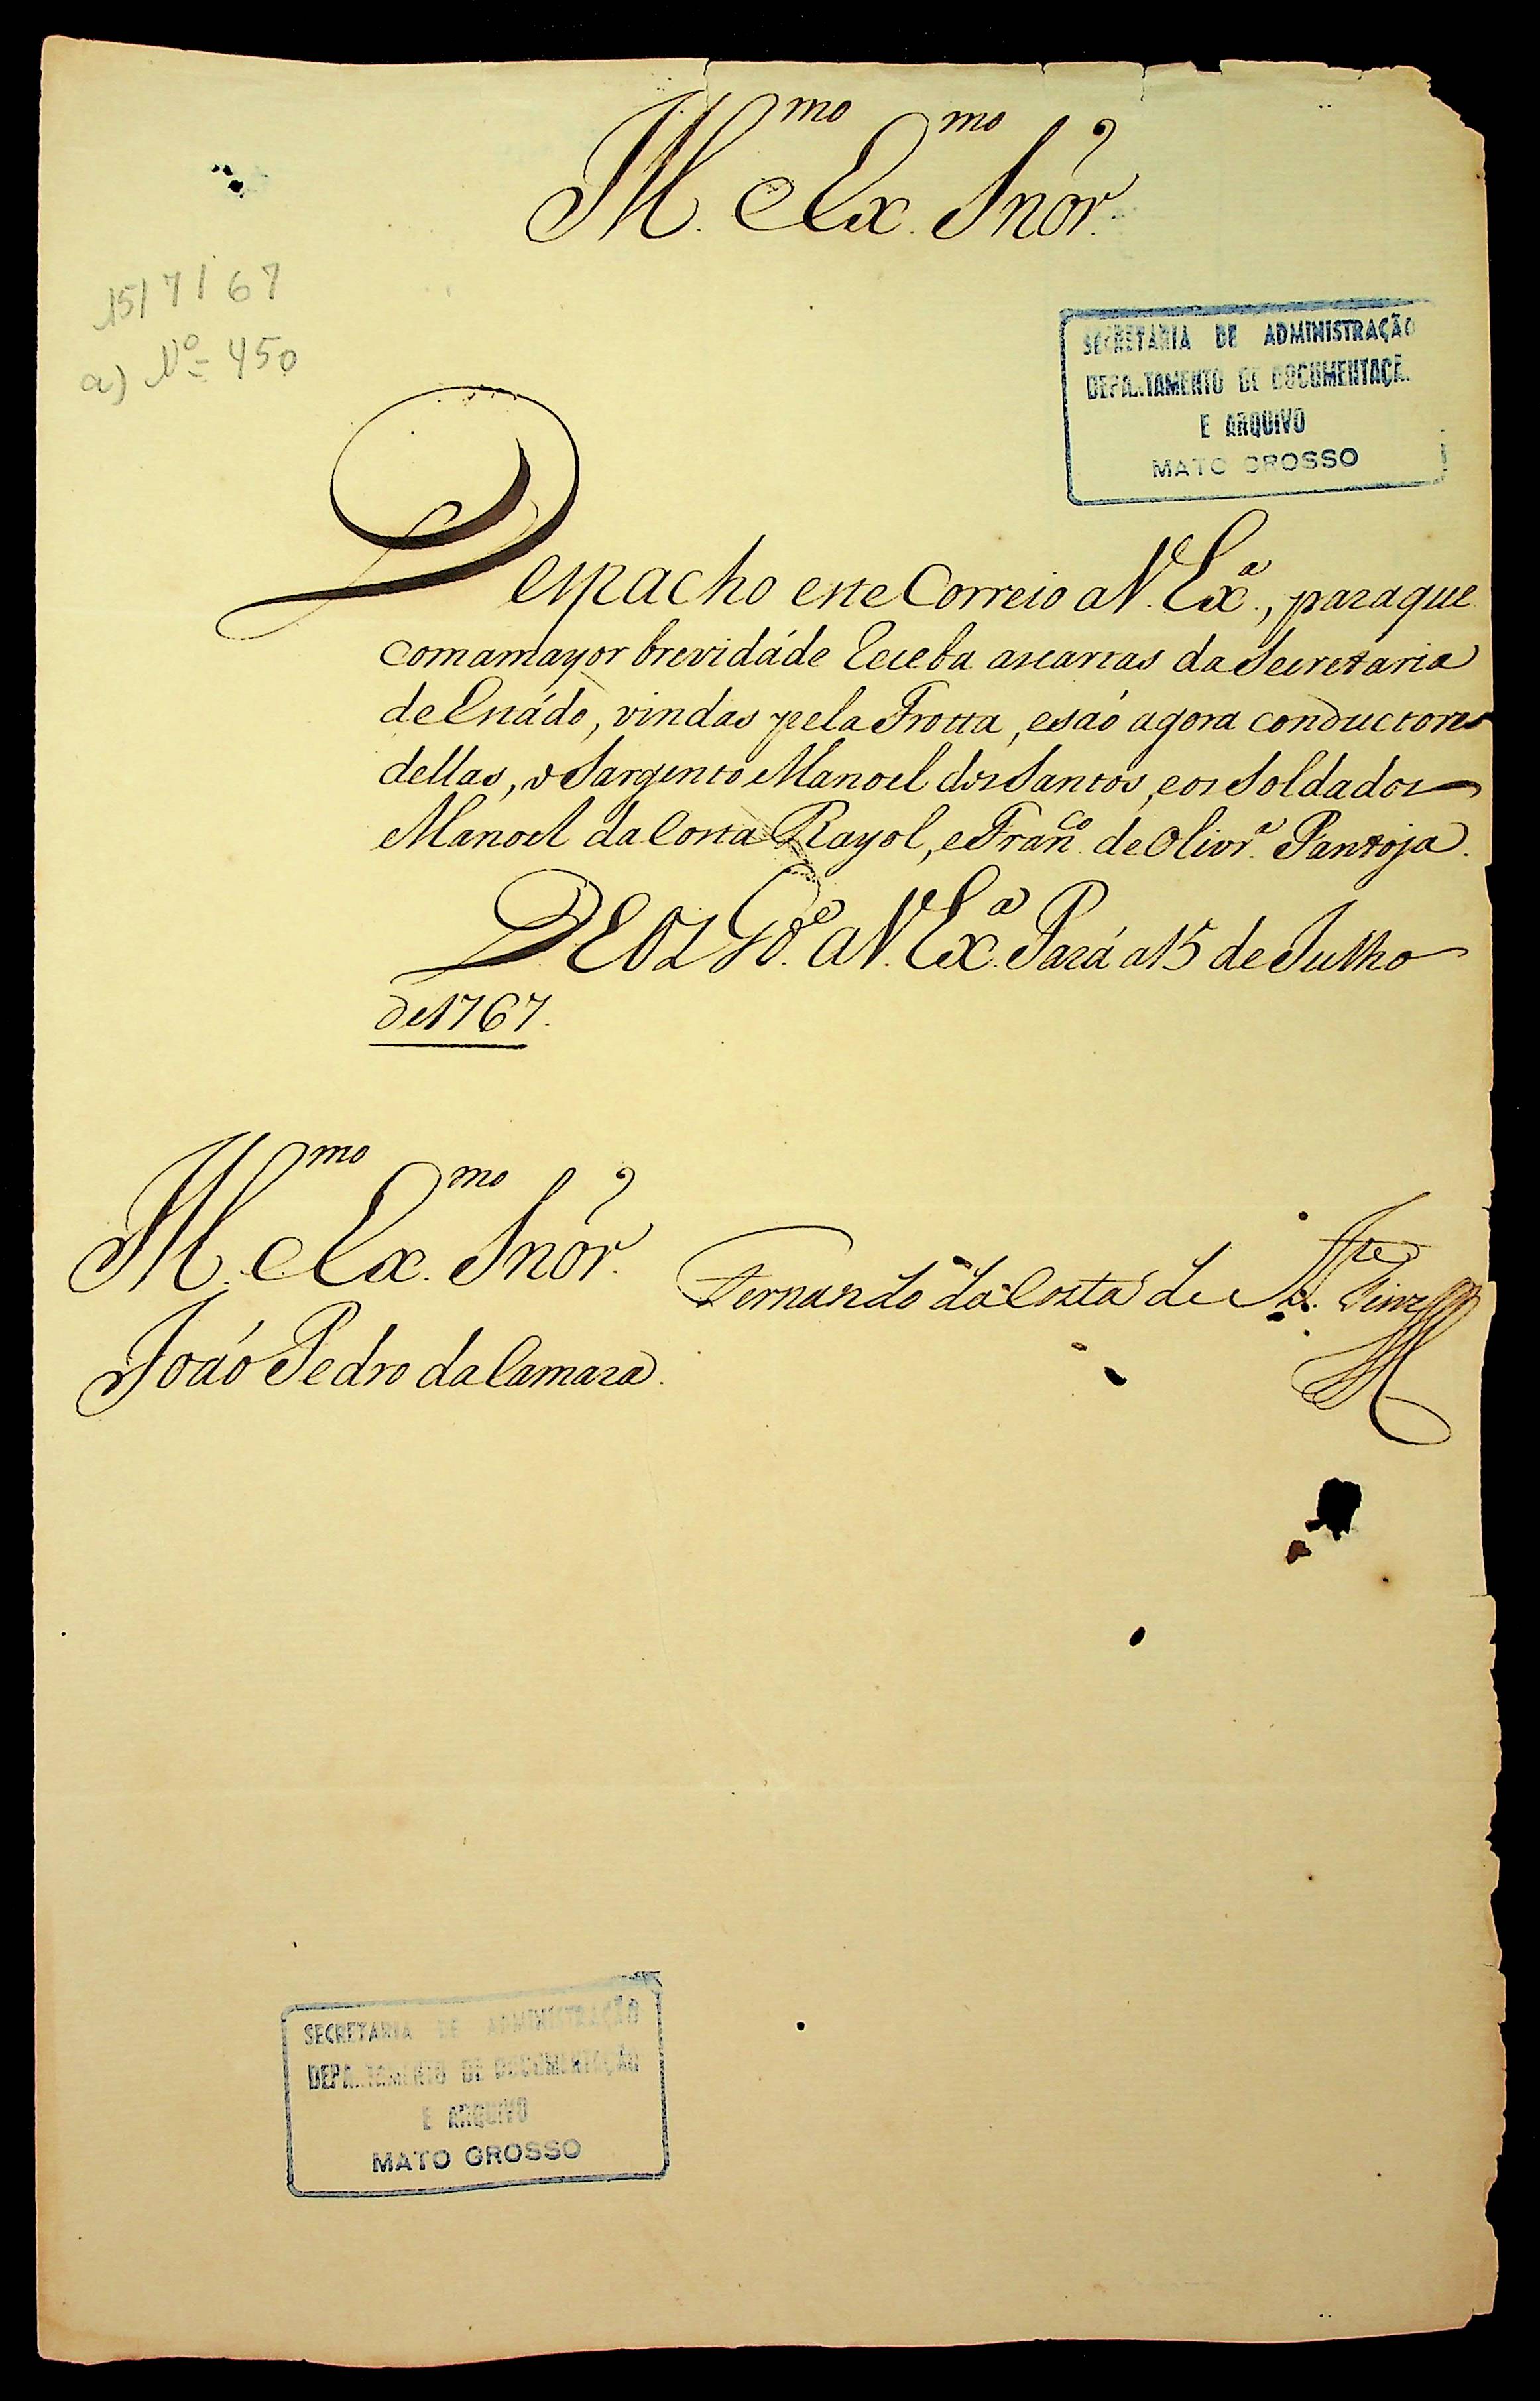 Ill.mo Ex.mo Snõr.
15/7/67
a) Nº 450
SECRETARIA DE ADMINISTRAÇÃO
DEPARTAMENTO DE DOCUMENTAÇÃ.
E ARQUIVO
MATO GROSSO
Despacho este Correio a V. Ex.ª, para que
com a mayor brevidáde receba as cartas da Secretaria
de Estádo, vindas pela Frotta, e saó agora conductores
dellas, o Sargento Manoel dos Santos, e os Soldados
Manoel da Costa Rayol, e Fran.co de Olivr.ª Pantoja.
DEOS G.de a V. Ex.ª Pará a 15 de Julho
de 1767.
Ill.mo Ex.mo Snõr.
Joaó Pedro da Camara.
Fernando da Costa de
SECRETARIA DE ADMINISTRAÇÃO
DEPARTAMENTO DE DOCUMENTAÇÃO
E ARQUIVO
MATO GROSSO